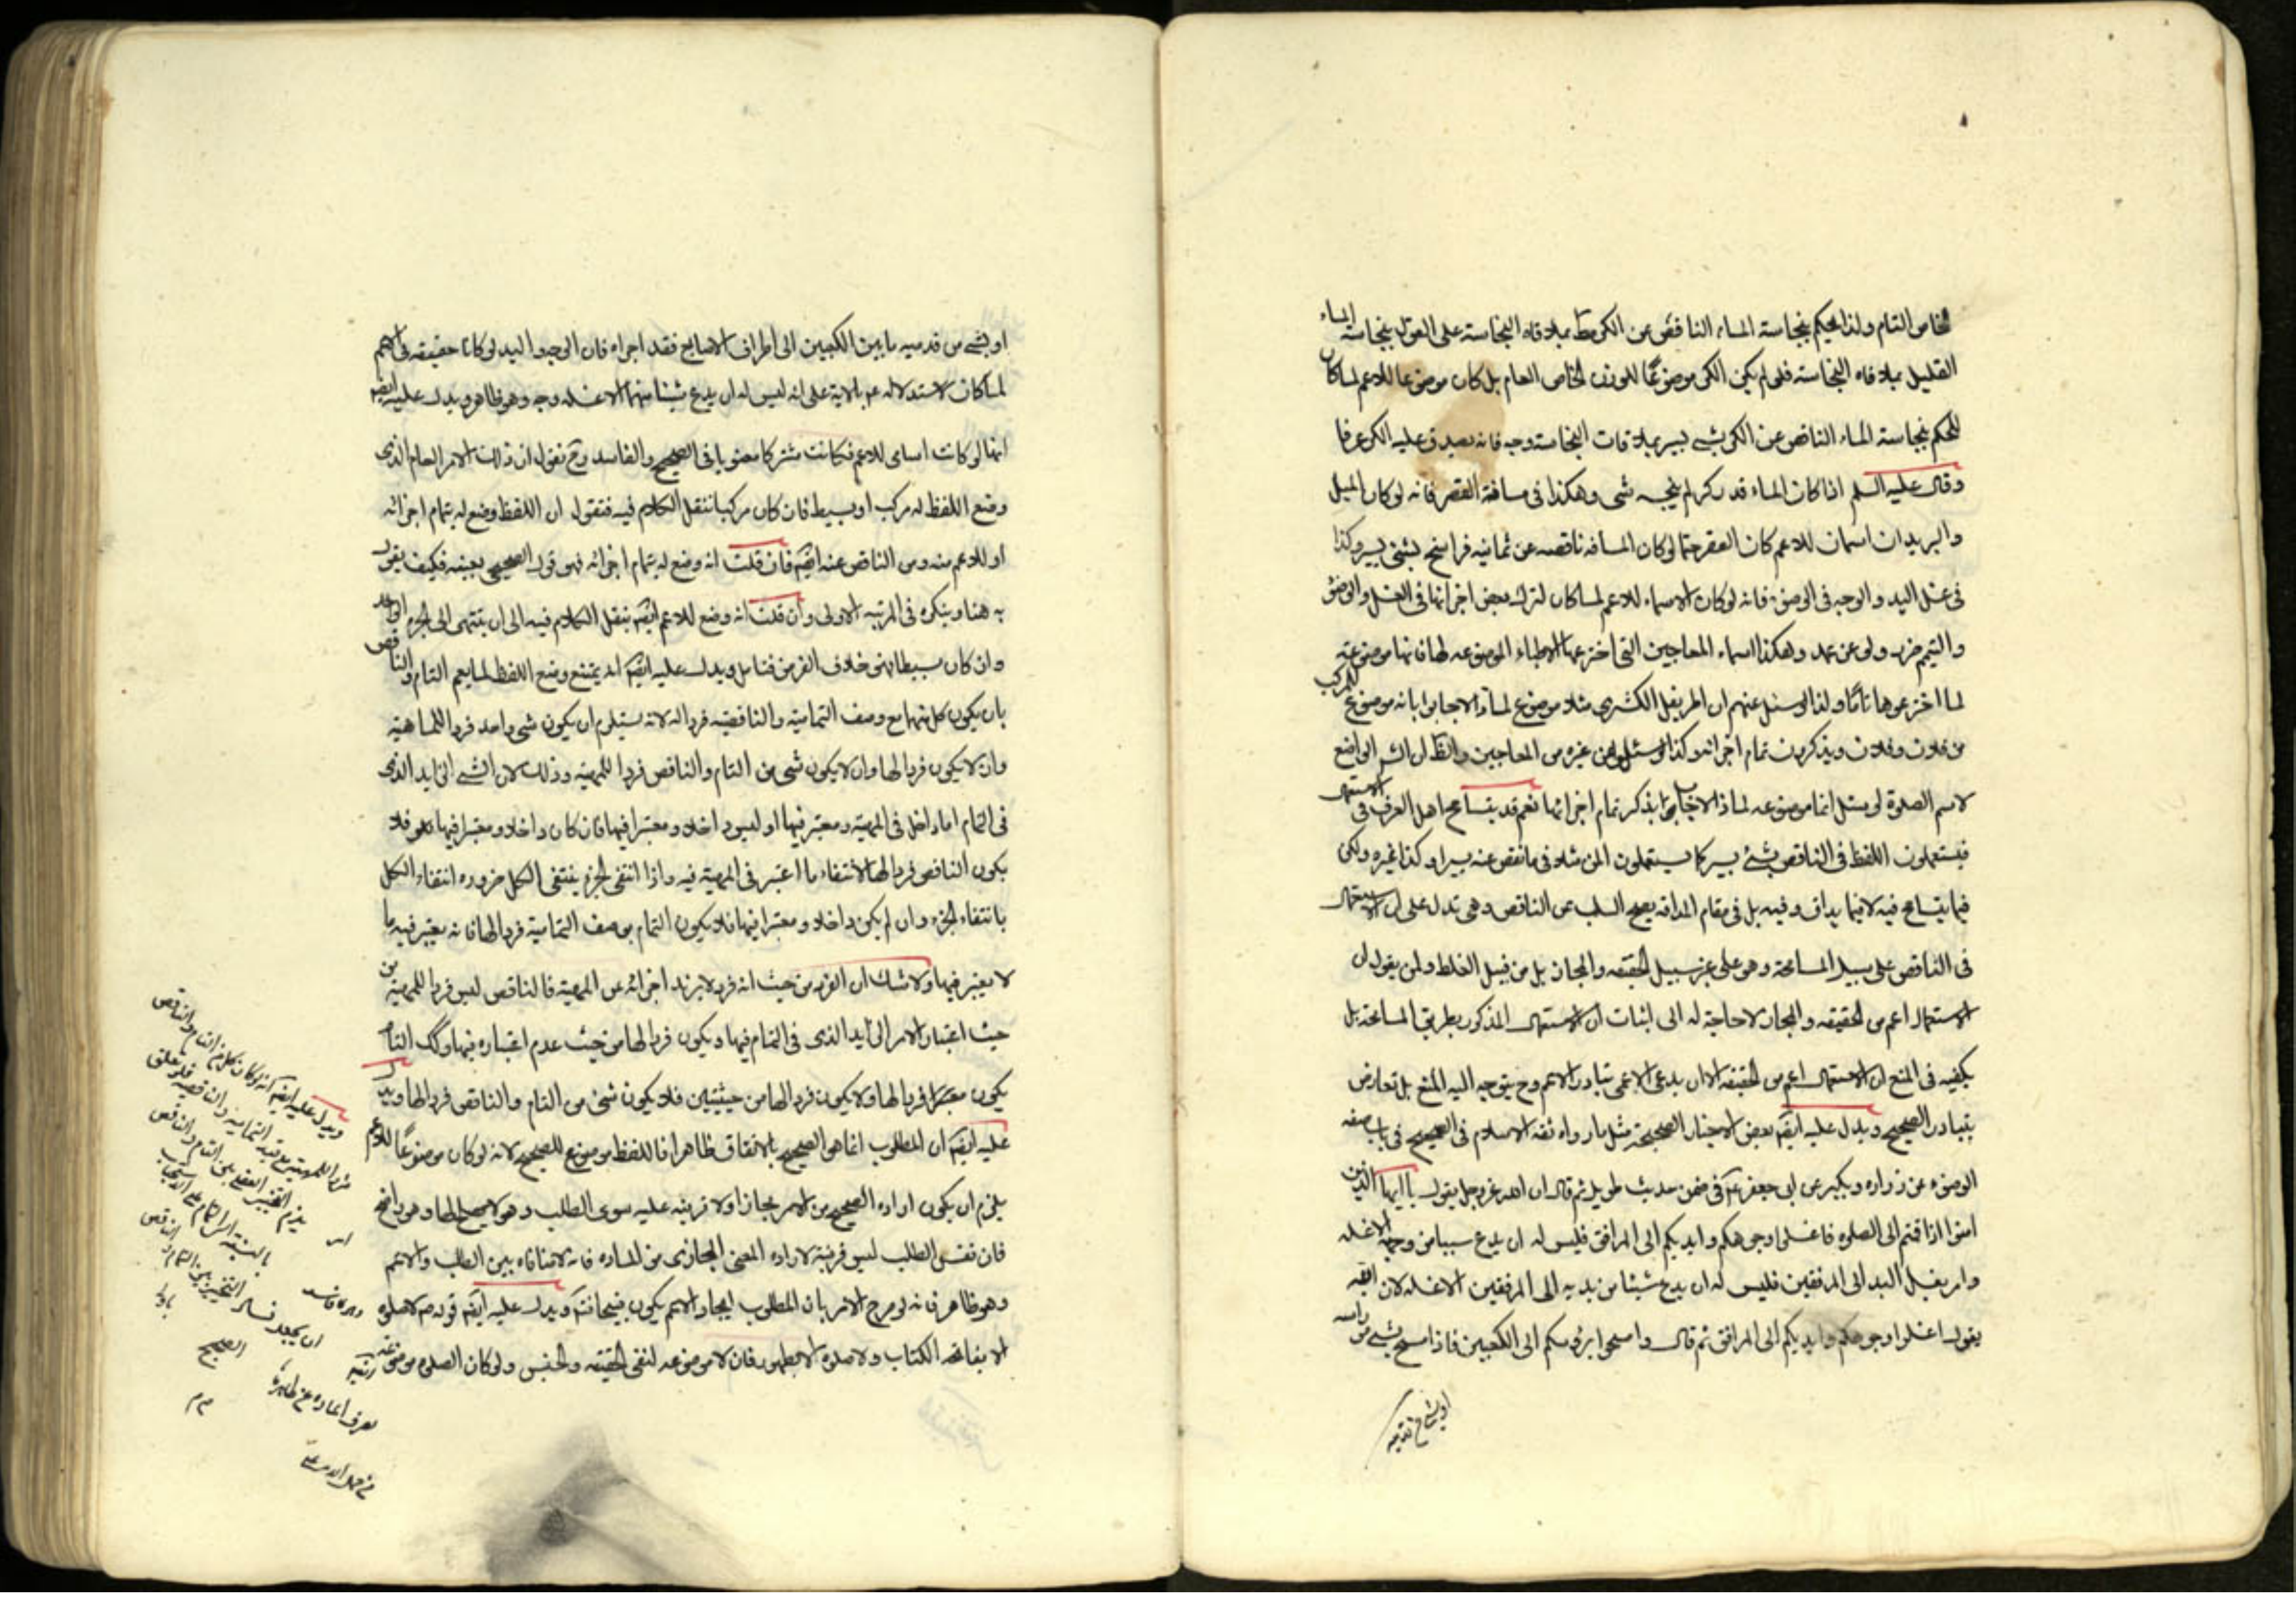 الخاص التام ولذا يحكم بنجاسة الماء الناقص عن الكر مط بملاقاه النجاسة على القول بنجاسة الماء
القليل بملاقاه النجاسة فلو لم يكن الكر موضوعًا للوزن الخاص التام بل كان موضوعا للاعم لما كان
للحكم بنجاسة الماء الناقص عن الكر بشئ يسير بملاقات النجاسة وجه فانه يصدق عليه الكر عرفا
وقال عليه السلم اذا كان الماء قدر كر لم ينجسه شى وهكذا فى مسافة القصر فانه لو كان الميل
والبريد ان اسمان للاعم كان القصر حتما لو كان المسافه ناقصه عن ثمانيه فراسخ بشئ يسير وكذا
فى غسل اليد والوجه فى الوضوء فانه لو كان الاسماء للاعم لما كان لترك بعض اجزائها فى الغسل والوضوء
والتيمم ضرر ولو عن عمد وهكذا اسماء المعاجين التى اخترعها الاطباء الموضوعه لها فانها موضوعة للمركب
لما اخترعوها تامًا ولذا لو سئل عنهم ان اطريفل الكشرى مثلا موضوع لماذا لاجابوا بانه موضوع
من فلان وفلان ويذكرون تمام اجزائه وكذا لو سئل عن غيره من المعاجين والظ ان الواضع
لاسم الصلوة لو سئل انها موضوعه لماذا لاجاب بذكر تمام اجزائها نعم قد يتسامح اهل العرف فى الاستعمال
فيستعملون اللفظ فى الناقص بشئ يسير كما يستعملون المن مثلا فى ما نقص عنه يسيرا وكذا غيره ولكن
فيما يتسامح فيه لا فيما يداق وفيه بل فى مقام المداقه يصح السلب عن الناقص وهى تدل على ان الاستعمال
فى الناقص على سبيل المسامحة وهو على غير سبيل الحقيقه والمجاز بل من قبيل الغلط ولمن يقول ان
الاستعمال اعم من الحقيقه والمجاز لا حاجة له الى اثبات ان الاستعمال المذكور بطريق المسامحة بل
يكفيه فى المنع ان الاستعمال اعم من الحقيقه الا ان يدعى الاعمى تبادر الاعم وح يتوجه اليه المنع بل تعارض
بتبادر الصحيح ويدل عليه ايضا بعض الاخبار الصحيحة مثل ما رواه ثقه الاسلام فى الصحيح فى باب صفه
الوضوء عن زراره وبكير عن ابى جعفر ع فى ضمن حديث طويل ثم قال ان الله عز وجل يقول يا ايها الذين
امنوا اذا قمتم الى الصلوه فاغسلوا وجوهكم وايديكم الى المرافق فليس له ان يدع شيئا من وجهه الا غسله
وامر بغسل اليد الى المرفقين فليس له ان يدع شيئا من يديه الى المرفقين الا غسله لان الله
يقول اغسلوا وجوهكم وايديكم الى المرافق ثم قال وامسحوا برؤسكم الى الكعبين فاذا مسح بشئ من راسه
او بشئ من قدميه
او بشئ من قدميه ما بين الكعبين الى اطراف الاصابع فقد اجزاه فان الوجه واليد لو كانا حقيقه فى الاعم
لما كان لاستدلاله ع بالاية على انه ليس له ان يدع شيئا منهما الا غسله وجه وهو ظاهر ويدل عليه ايضا
انها لو كانت اسامى للاعم فكانت مشتركا معنويا فى الصحيح والفاسد وح نقول ان ذلك الامر العام الذى
وضع اللفظ له مركب او بسيط فان كان مركبا ننقل الكلام فيه فنقول ان اللفظ وضع له بتمام اجزائه
او للاعم منه ومن الناقص عنه ايضا فان قلت انه وضع له بتمام اجزائه فهو قول الصحيحى بعينه فكيف يقول
به هنا وينكره فى المرتبه الاولى وان قلت انه وضع للاعم ايضا ننقل الكلام فيه الى ان ينتهى الى الجزء الواحد
وان كان بسيطا فهو خلاف الفرض فتامل ويدل عليه ايضا انه يمتنع وضع اللفظ لما يعم التام والناقص
بان يكون كل منهما مع وصف التماميه والناقصيه فردا له لانه يستلزم ان يكون شى واحد فردا للماهية
وان لا يكون فردا لها وان لا يكون شى من التام والناقص فردا للمهية وذلك لان الشئ الزايد الذى
فى التمام اما داخل فى المهية ومعتبر فيها او ليس داخلا ومعتبرا فيها فان كان داخلا ومعتبرا فيها فلا
يكون الناقص فردا لها لانتفاء ما اعتبر فى المهية فيه واذا انتفى الجزء ينتفى الكل ضروره انتفاء الكل
بانتفاء الجزء وان لم يكن داخلا ومعتبرا فيها فلا يكون التمام بوصف التمامية فردا لها فانه يعتبر فيه ما
لا يعتبر فيها ولا شك ان الفرد من حيث انه فرد لا يزيد اجزائه عن المهية فالناقص ليس فردا للمهية من
حيث اعتبار الامر الزايد الذى فى التمام فيها ويكون فردا لها من حيث عدم اعتباره فيها وكك التام
يكون معتبرا فردا لها ولا يكون فردا لها من حيثيتين فلا يكون شئ من التام والناقص فردا لها ويدل
عليه ايضا ان المطلوب انما هو الصحيح بالاتفاق ظاهرا فاللفظ موضوع للصحيح لانه لو كان موضوعًا للاعم
يلزم ان يكون اراده الصحيح من الامر مجازا ولا قرينه عليه سوى الطلب وهو لا يصلح لها وهو واضح
فان نفس الطلب ليس قرينة لاراده المعنى المجازى من الماده فانه لا منافاه بين الطلب والاعم
وهو ظاهر فانه لو صرح الامر بان المطلوب ايجاد الاعم يكون صحيحا ويدل عليه ايضا قوله ص لا صلوه
الا بفاتحه الكتاب ولا صلوه الا بطهور فان لا موضوعه لنفى الحقيقه والجنس ولو كان الصلوه موضوعه
ويدل عليه ايضا انه لو كان كل من التام والناقص